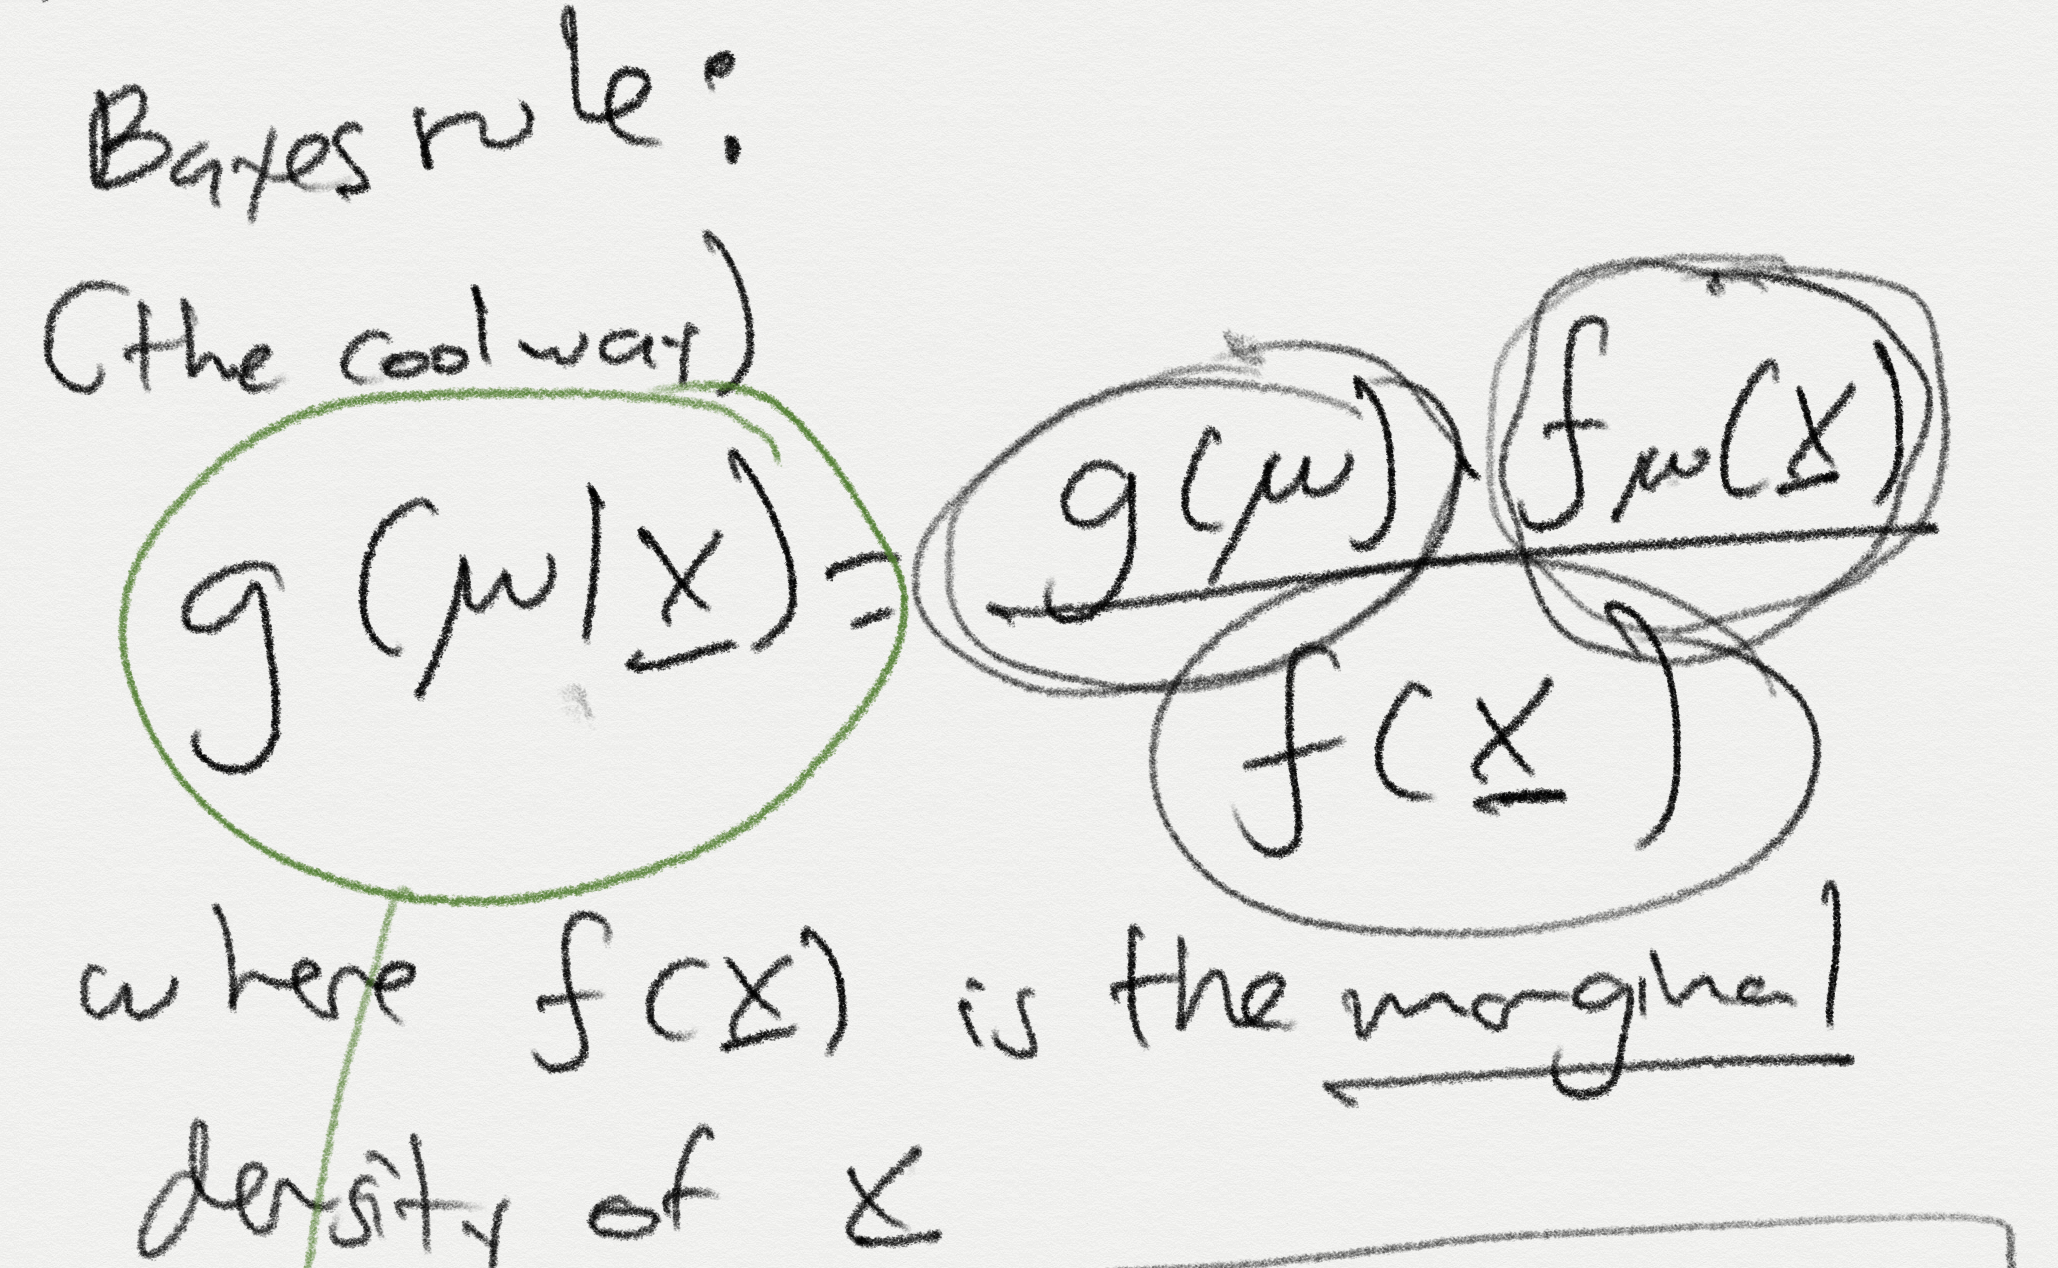 Bayes rule:
(the cool way)
g(μ|x) = g(μ) · fμ(x)
f(x)
where f(x) is the marginal
density of x